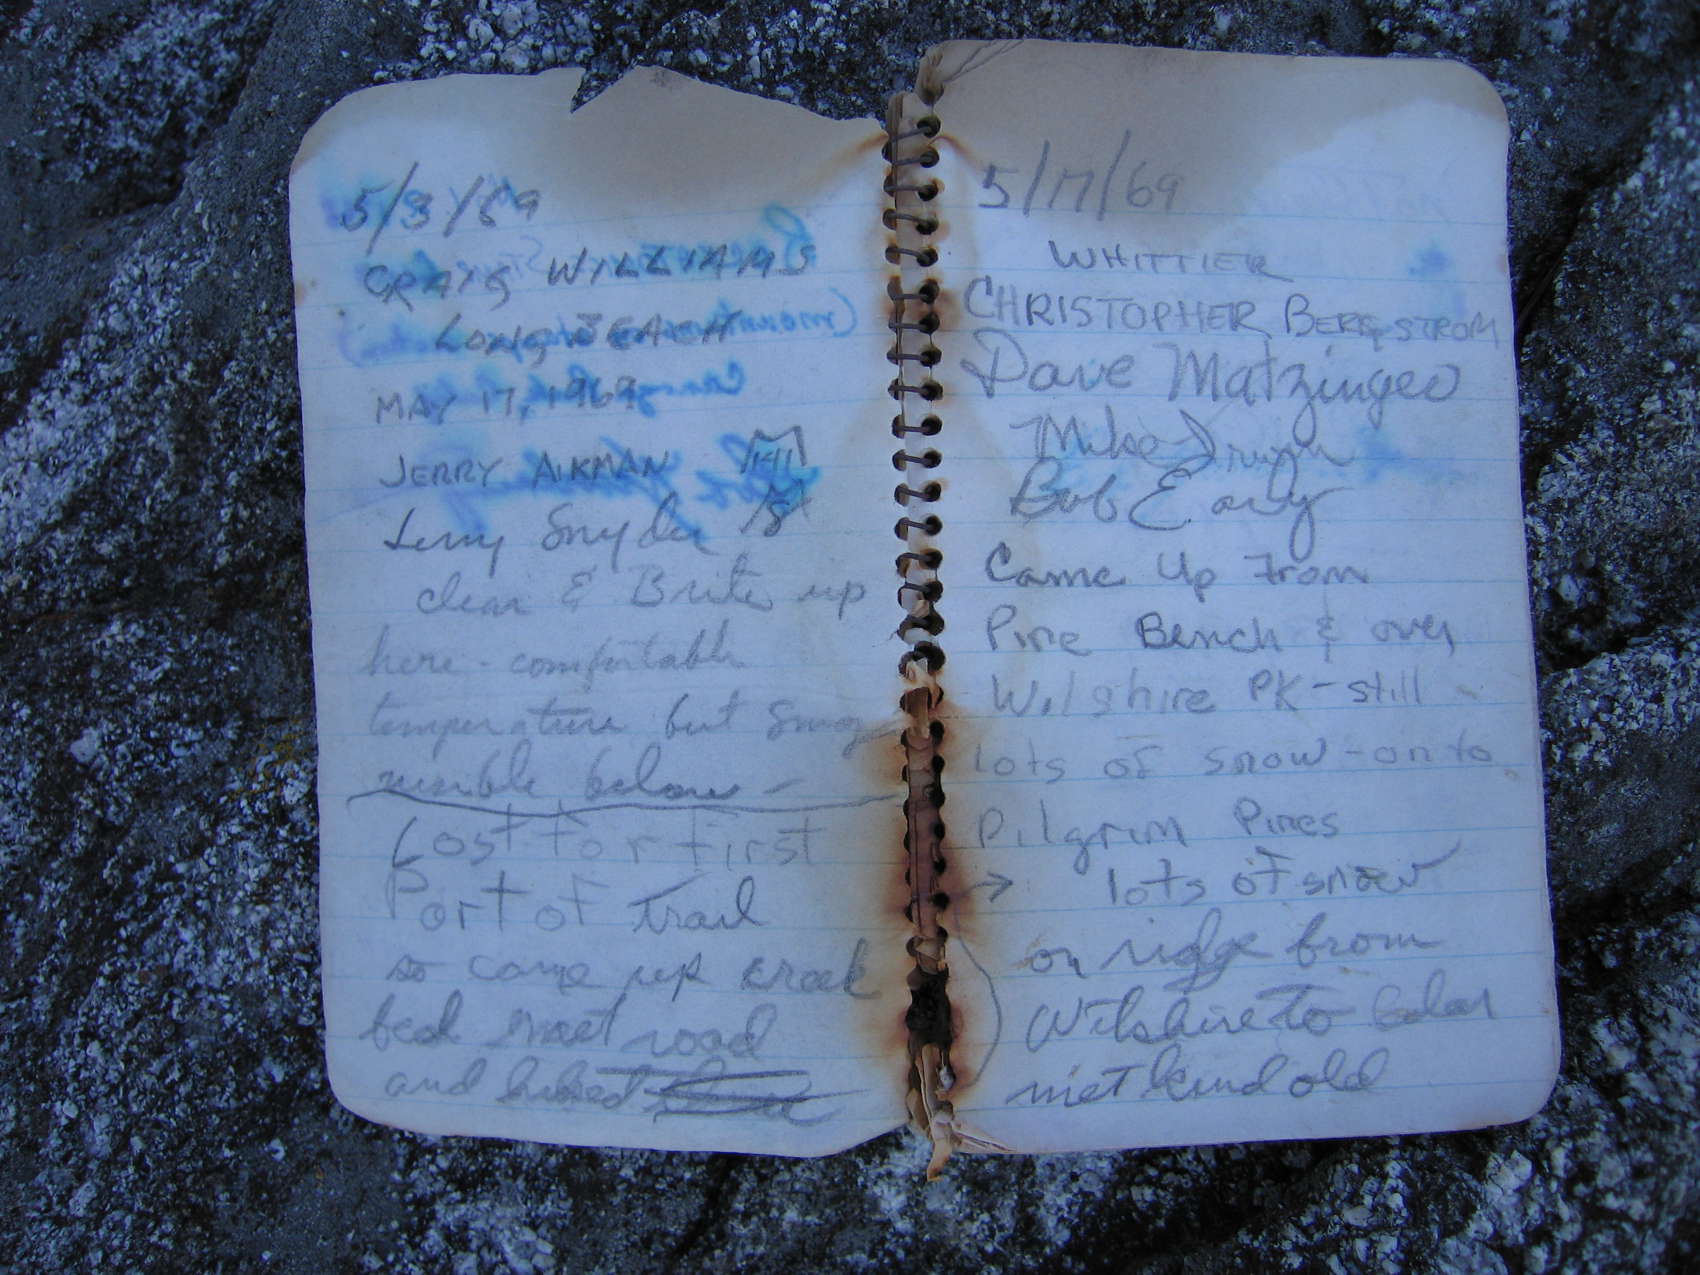 5/3/69
CRAIG WILLIAMS
LONG BEACH
MAY 17, 1969
JERRY AIKMAN
Snyder
clear & Brite up
here - comfortable
temperature but smog
visible below -
Lost for first
Part of trail
so came up creek
bed met road
and hiked
5/17/69
WHITTIER
CHRISTOPHER BERGSTROM
Dave Matzinger
Mike
Bob Early
Came Up From
Pine Bench & over
Wilshire PK - still
lots of snow - on to
Pilgrim Pines
→ lots of snow
on ridge from
Wilshire to
met kind old